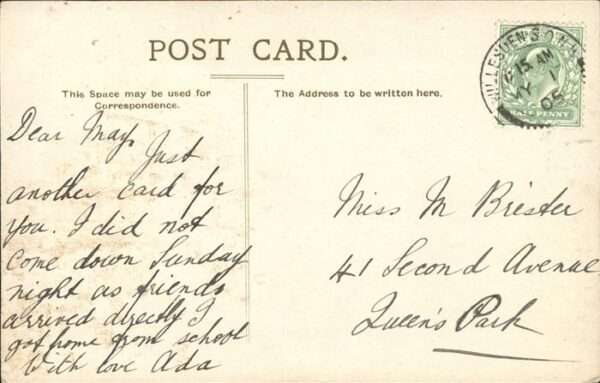 POST CARD.
This Space may be used for
Correspondence.
The Address to be written here.
WILLESDEN S.O. N.W.
15 AM
MY 1
05
HALF PENNY
Dear May, Just
another card for
you. I did not
come down Sunday
night as friends
arrived directly I
got home from school
With love Ada
Miss M Brister
41 Second Avenue
Queen's Park